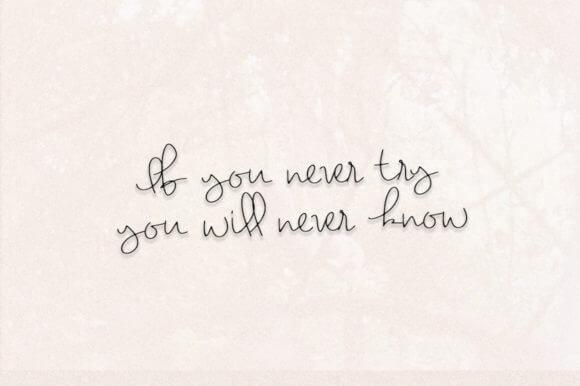 If you never try
you will never know